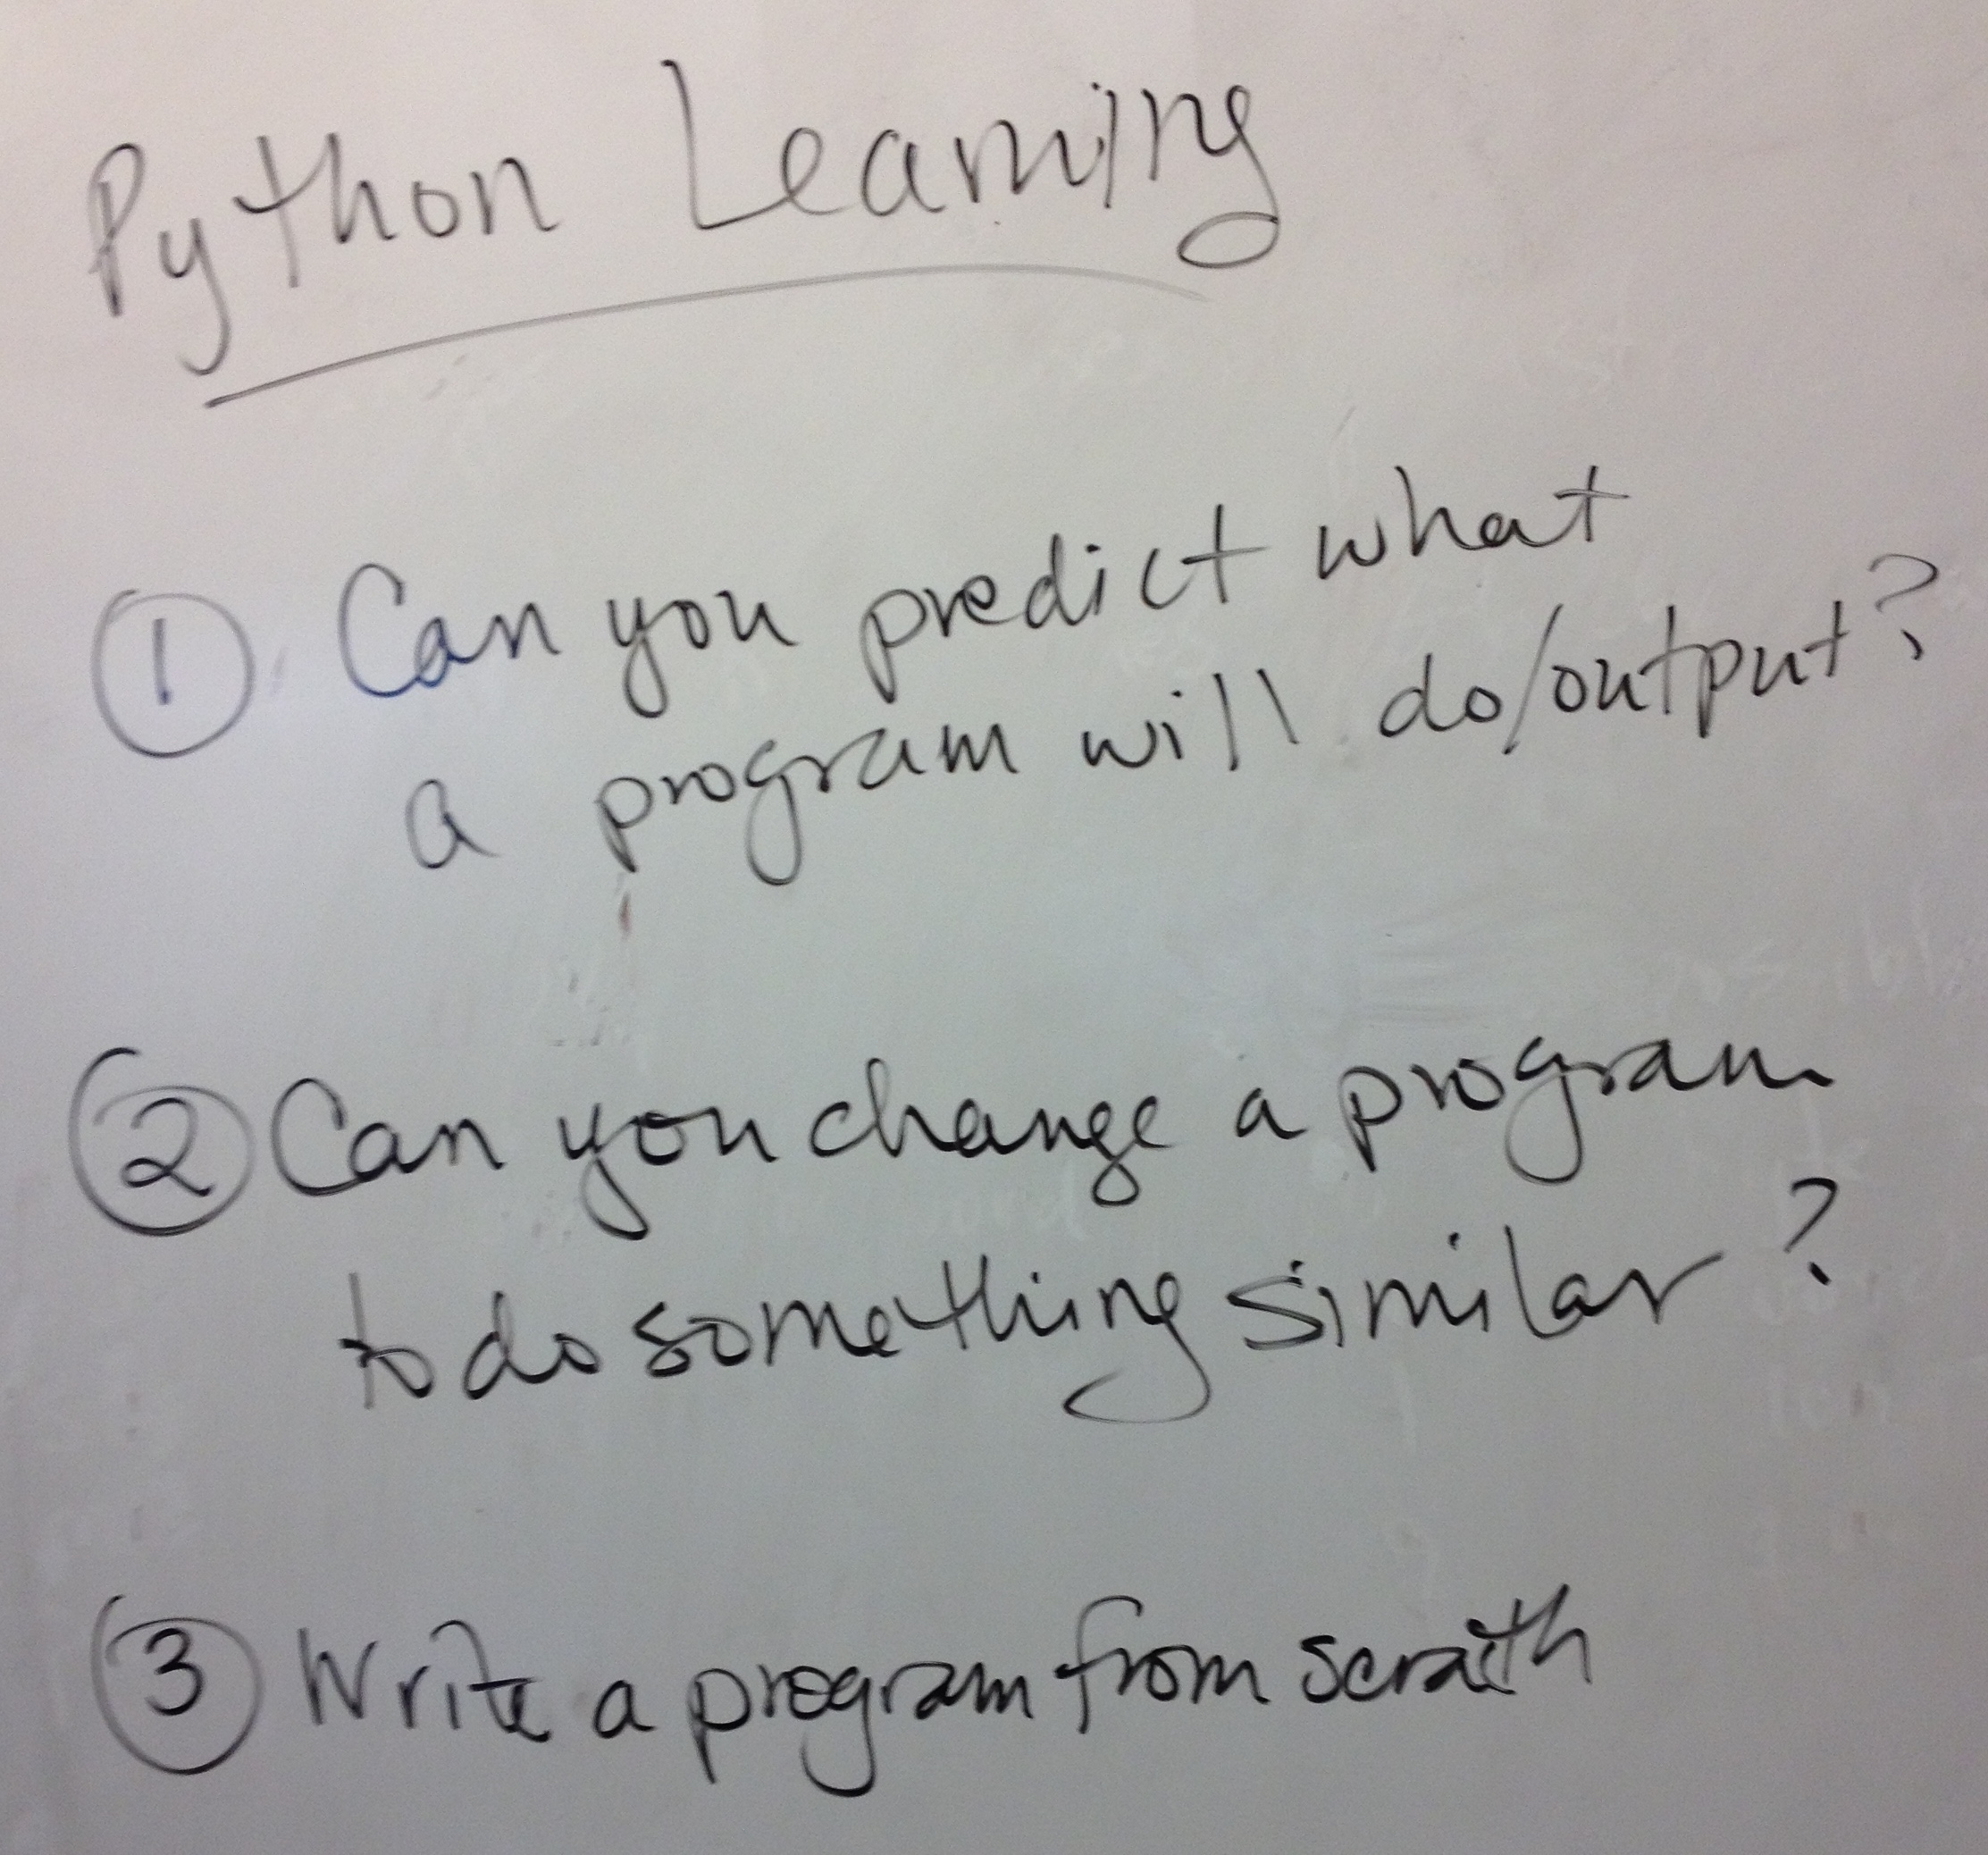 Python Learning
① Can you predict what
a program will do/output?
② Can you change a program
to do something similar?
③ Write a program from scratch